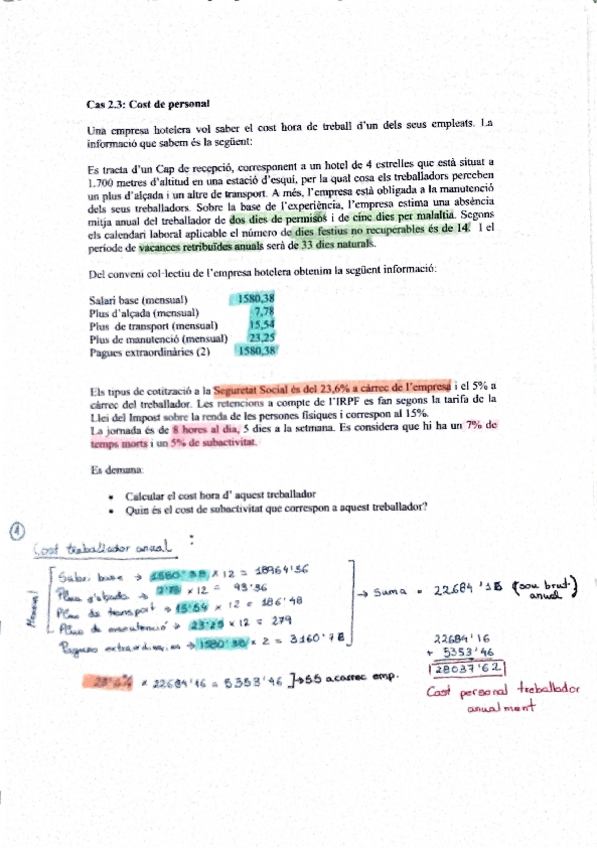 Cas 2.3: Cost de personal
Una empresa hotelera vol saber el cost hora de treball d'un dels seus empleats. La
informació que sabem és la següent:
Es tracta d'un Cap de recepció, corresponent a un hotel de 4 estrelles que està situat a
1.700 metres d'altitud en una estació d'esquí, per la qual cosa els treballadors perceben
un plus d'alçada i un altre de transport. A més, l'empresa està obligada a la manutenció
dels seus treballadors. Sobre la base de l'experiència, l'empresa estima una absència
mitja anual del treballador de dos dies de permisos i de cinc dies per malaltia. Segons
els calendari laboral aplicable el número de dies festius no recuperables és de 14. I el
període de vacances retribuïdes anuals serà de 33 dies naturals.
Del conveni col·lectiu de l'empresa hotelera obtenim la següent informació:
Salari base (mensual) 1580,38
Plus d'alçada (mensual) 7,78
Plus de transport (mensual) 15,54
Plus de manutenció (mensual) 23,25
Pagues extraordinàries (2) 1580,38
Els tipus de cotització a la Seguretat Social és del 23,6% a càrrec de l'empresa i el 5% a
càrrec del treballador. Les retencions a compte de l'IRPF es fan segons la tarifa de la
Llei del Impost sobre la renda de les persones físiques i correspon al 15%.
La jornada és de 8 hores al dia, 5 dies a la setmana. Es considera que hi ha un 7% de
temps morts i un 5% de subactivitat.
Es demana:
• Calcular el cost hora d' aquest treballador
• Quin és el cost de subactivitat que correspon a aquest treballador?
1
Cost treballador anual :
Mensual
Salari base → 1580'38 × 12 = 18964'56
Plus d'alçada → 7'78 × 12 = 93'36
Plus de transport → 15'54 × 12 = 186'48
Plus de manutenció → 23'25 × 12 = 279
Pagues extraordinàries → 1580'38 × 2 = 3160'76
→ Suma = 22684'16 (sou brut anual)
23'6% × 22684'16 = 5353'46 ]→ SS a càrrec emp.
22684'16
+ 5353'46
28037'62
Cost personal treballador
anualment